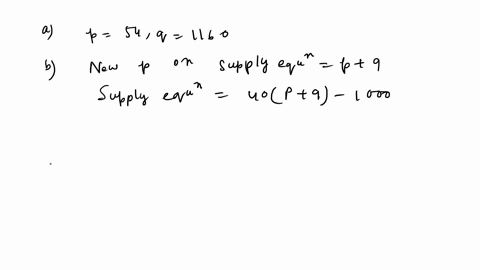 a) p = 54, q = 1160
b) New p on supply equⁿ = p + 9
Supply equⁿ = 40(P+9) - 1000